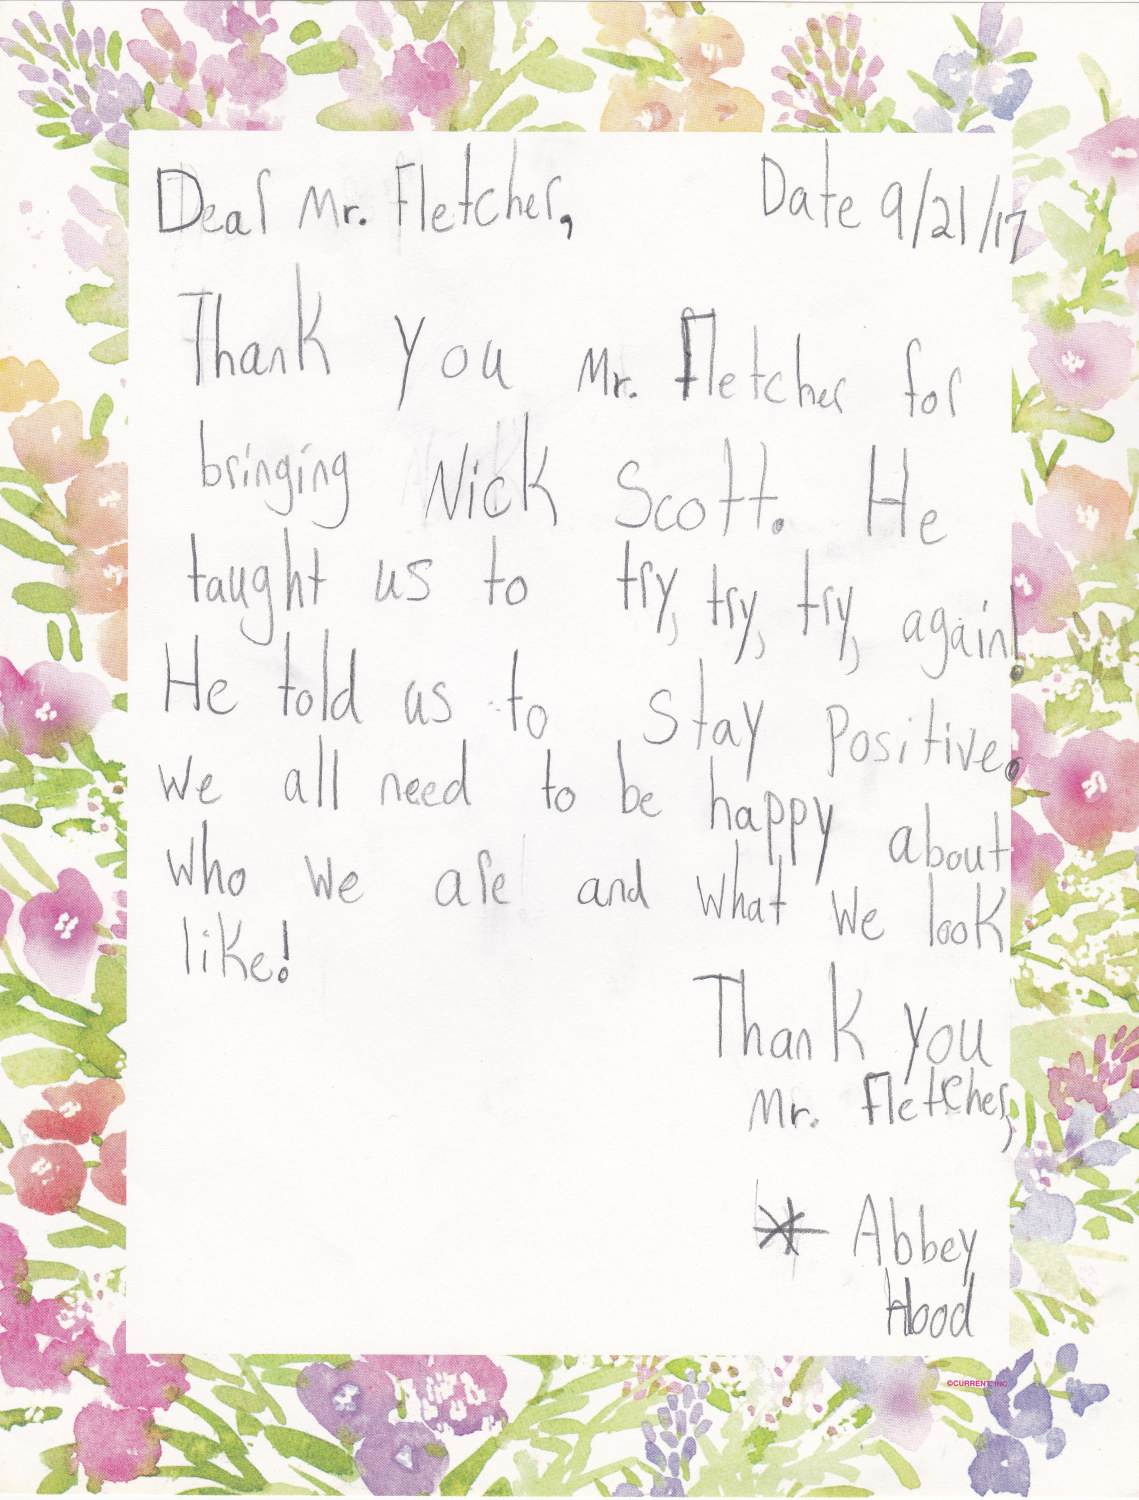 Dear Mr. Fletcher, Date 9/21/17
Thank you Mr. Fletcher for
bringing Nick Scott. He
taught us to try, try, try, again!
He told us to stay Positive.
We all need to be happy about
who we are and what we look
like!
Thank you
Mr. Fletcher,
Abbey
Hood
©CURRENT, INC.